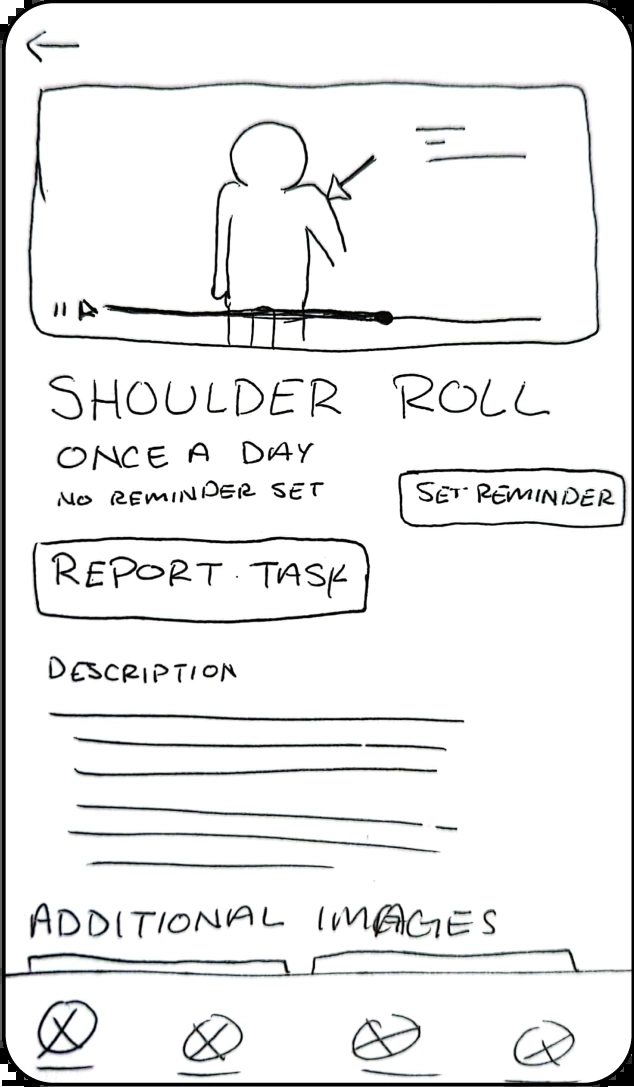 SHOULDER ROLL
ONCE A DAY
NO REMINDER SET
SET REMINDER
REPORT TASK
DESCRIPTION
ADDITIONAL IMAGES